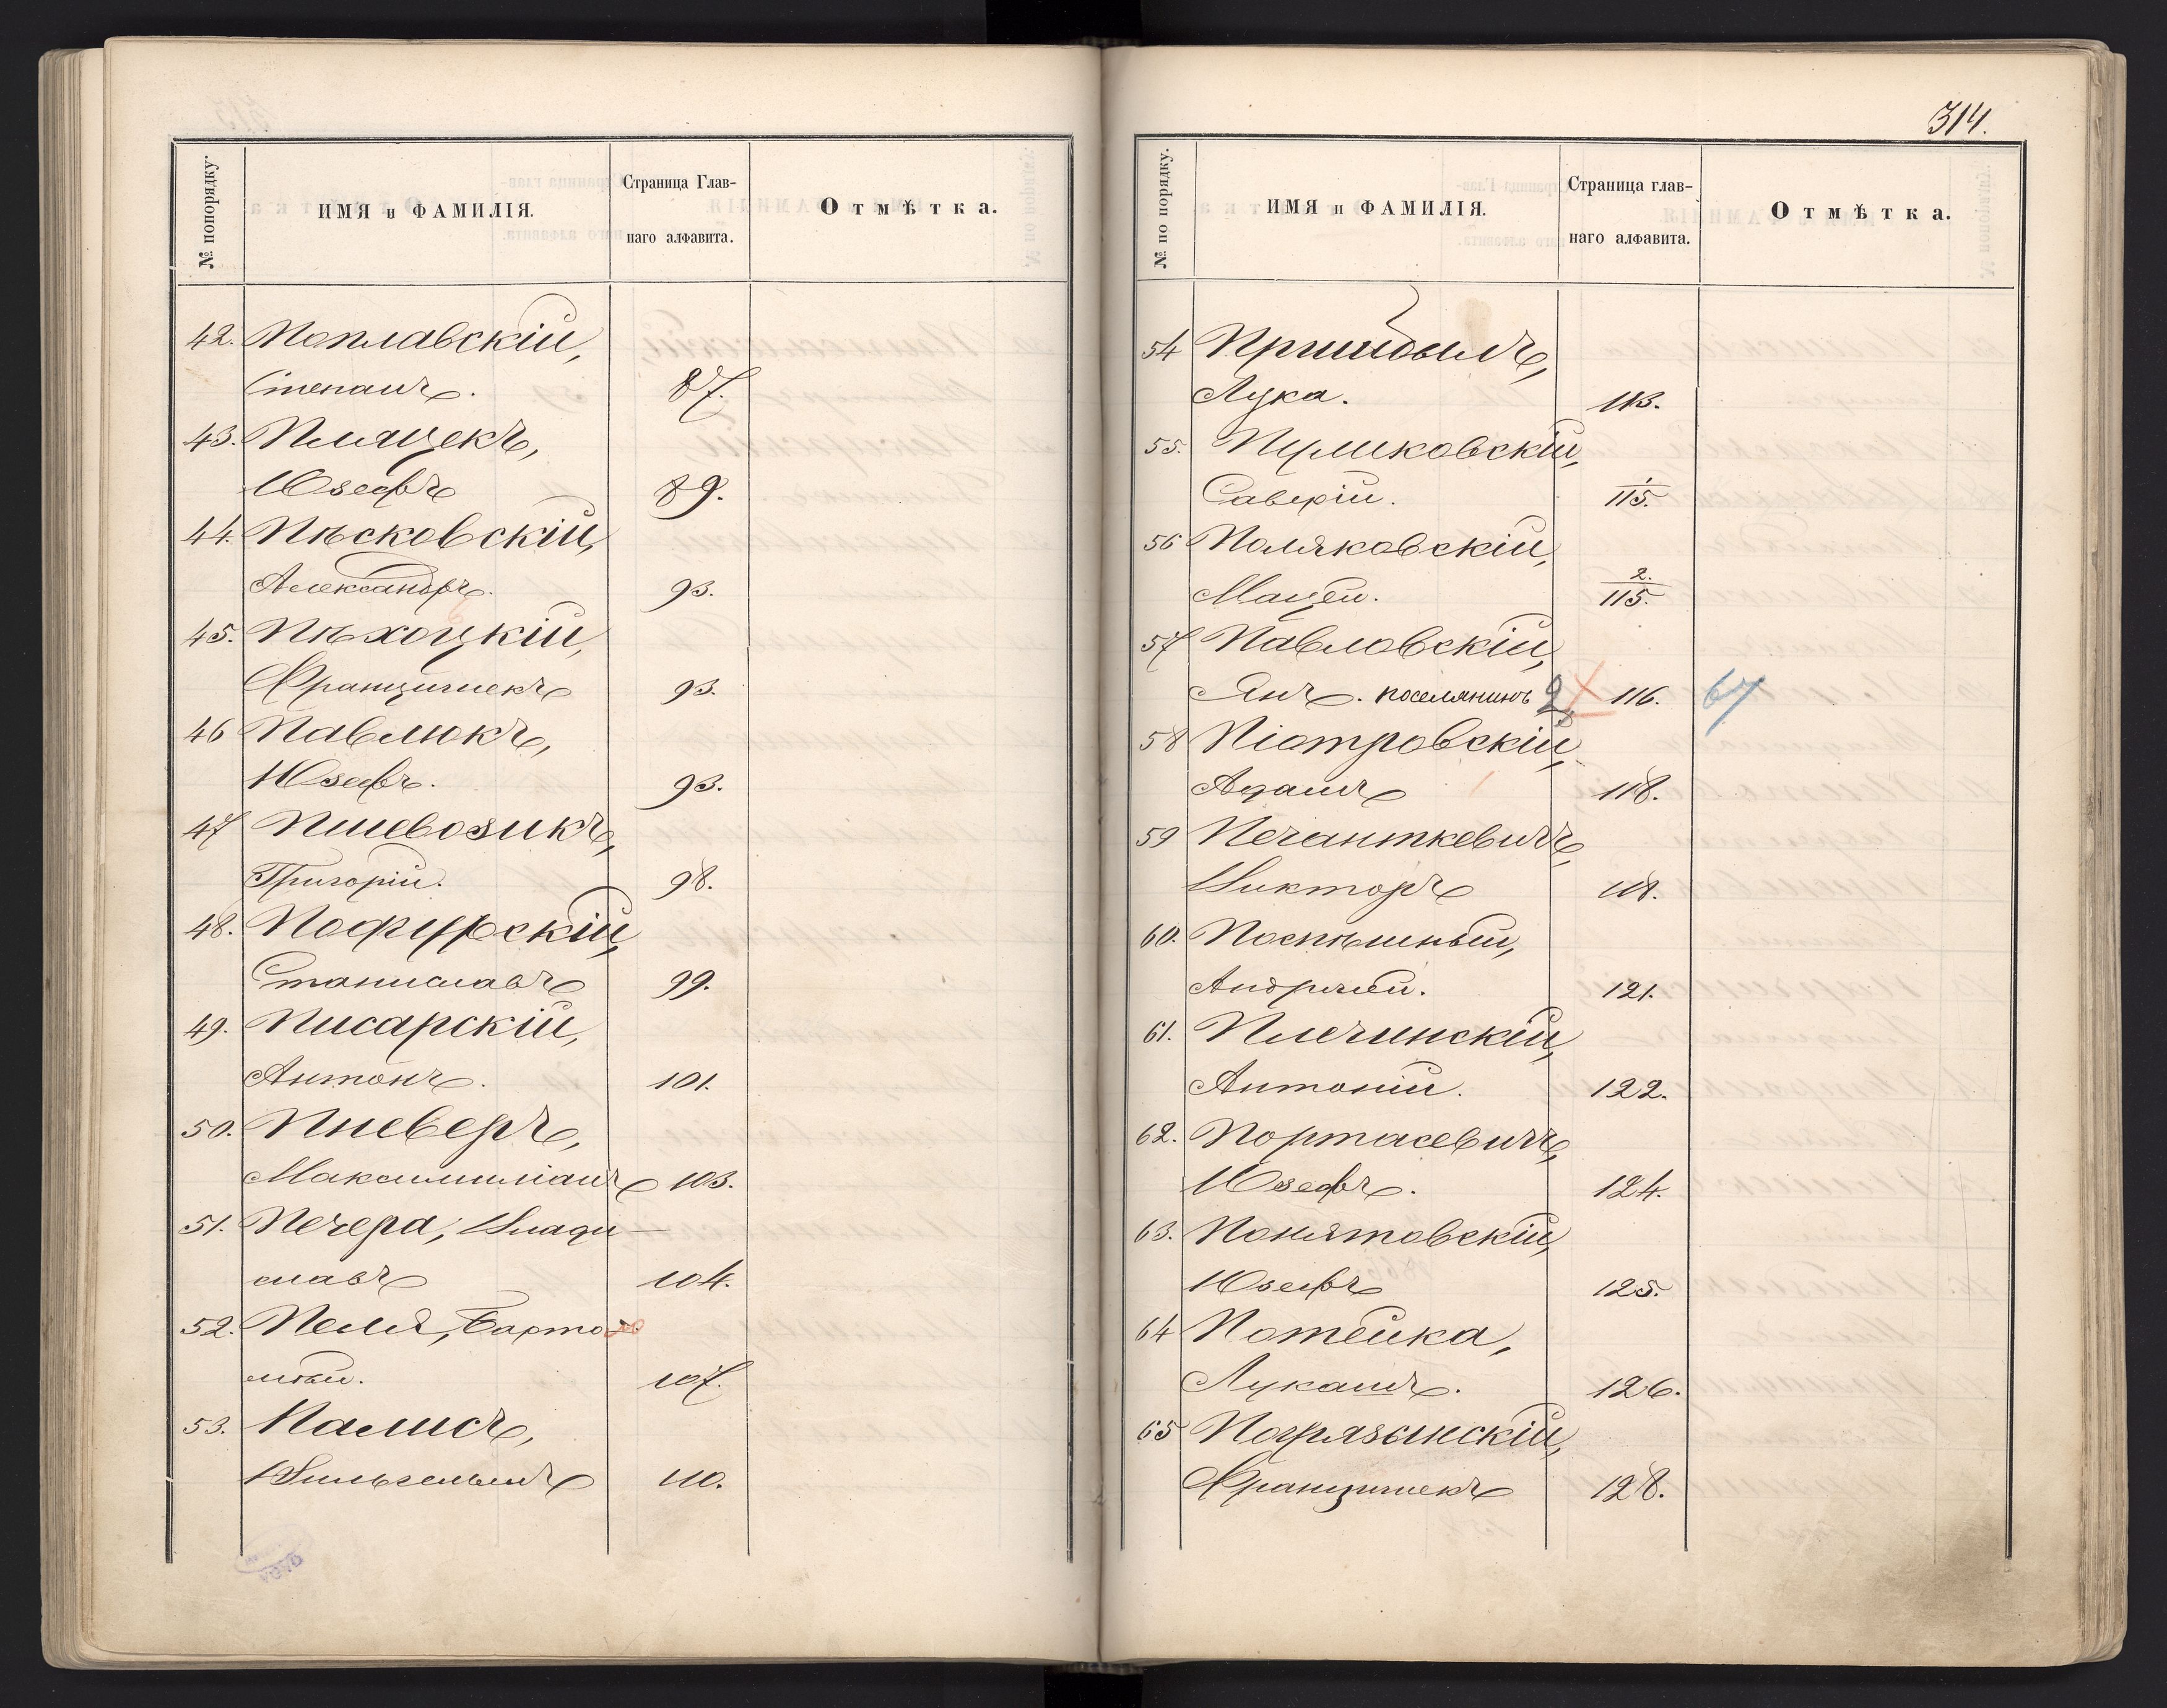 № попорядку.
ИМЯ и ФАМИЛІЯ.
Страница Глав-
наго алфавита.
Отмѣтка.
42. Поплавскій,
Степанъ. 87.
43. Пляцекъ,
Юзефъ 89.
44. Пѣсковскій,
Александръ. 93.
45. Пѣхоцкій,
Францишекъ 93.
46 Павлюкъ,
Юзефъ. 93.
47 Пшевозикъ,
Григорій. 98.
48.
Станиславъ 99.
49. Писарскій,
Антонъ. 101.
50. Пневеръ,
Максимиліанъ 103.
51. Печера, Влади-
славъ 104.
52. Пеля, Барто-
мѣй. 107.
53. Палисъ,
Вильгельмъ 110.
314.
№ по порядку.
ИМЯ и ФАМИЛІЯ.
Страница глав-
наго алфавита.
Отмѣтка.
54 Пришбылъ,
Лука. 113.
55. Пуликовскій,
Саверій. 1/115.
56 Поляковскій,
Мацей. 2./115.
57 Павловскій,
Янъ. поселянинъ 2 116. 67
58 Піотровскій,
Адамъ 118.
59 Печанткевичъ,
Викторъ 118.
60. Поспѣшный,
Андржей. 121.
61. Плечинскій,
Антоній. 122.
62. Портасевичъ,
Юзефъ. 124.
63. Понятовскій,
Юзефъ 125.
64 Потейка,
Лукашъ. 126.
65
Францишекъ 128.